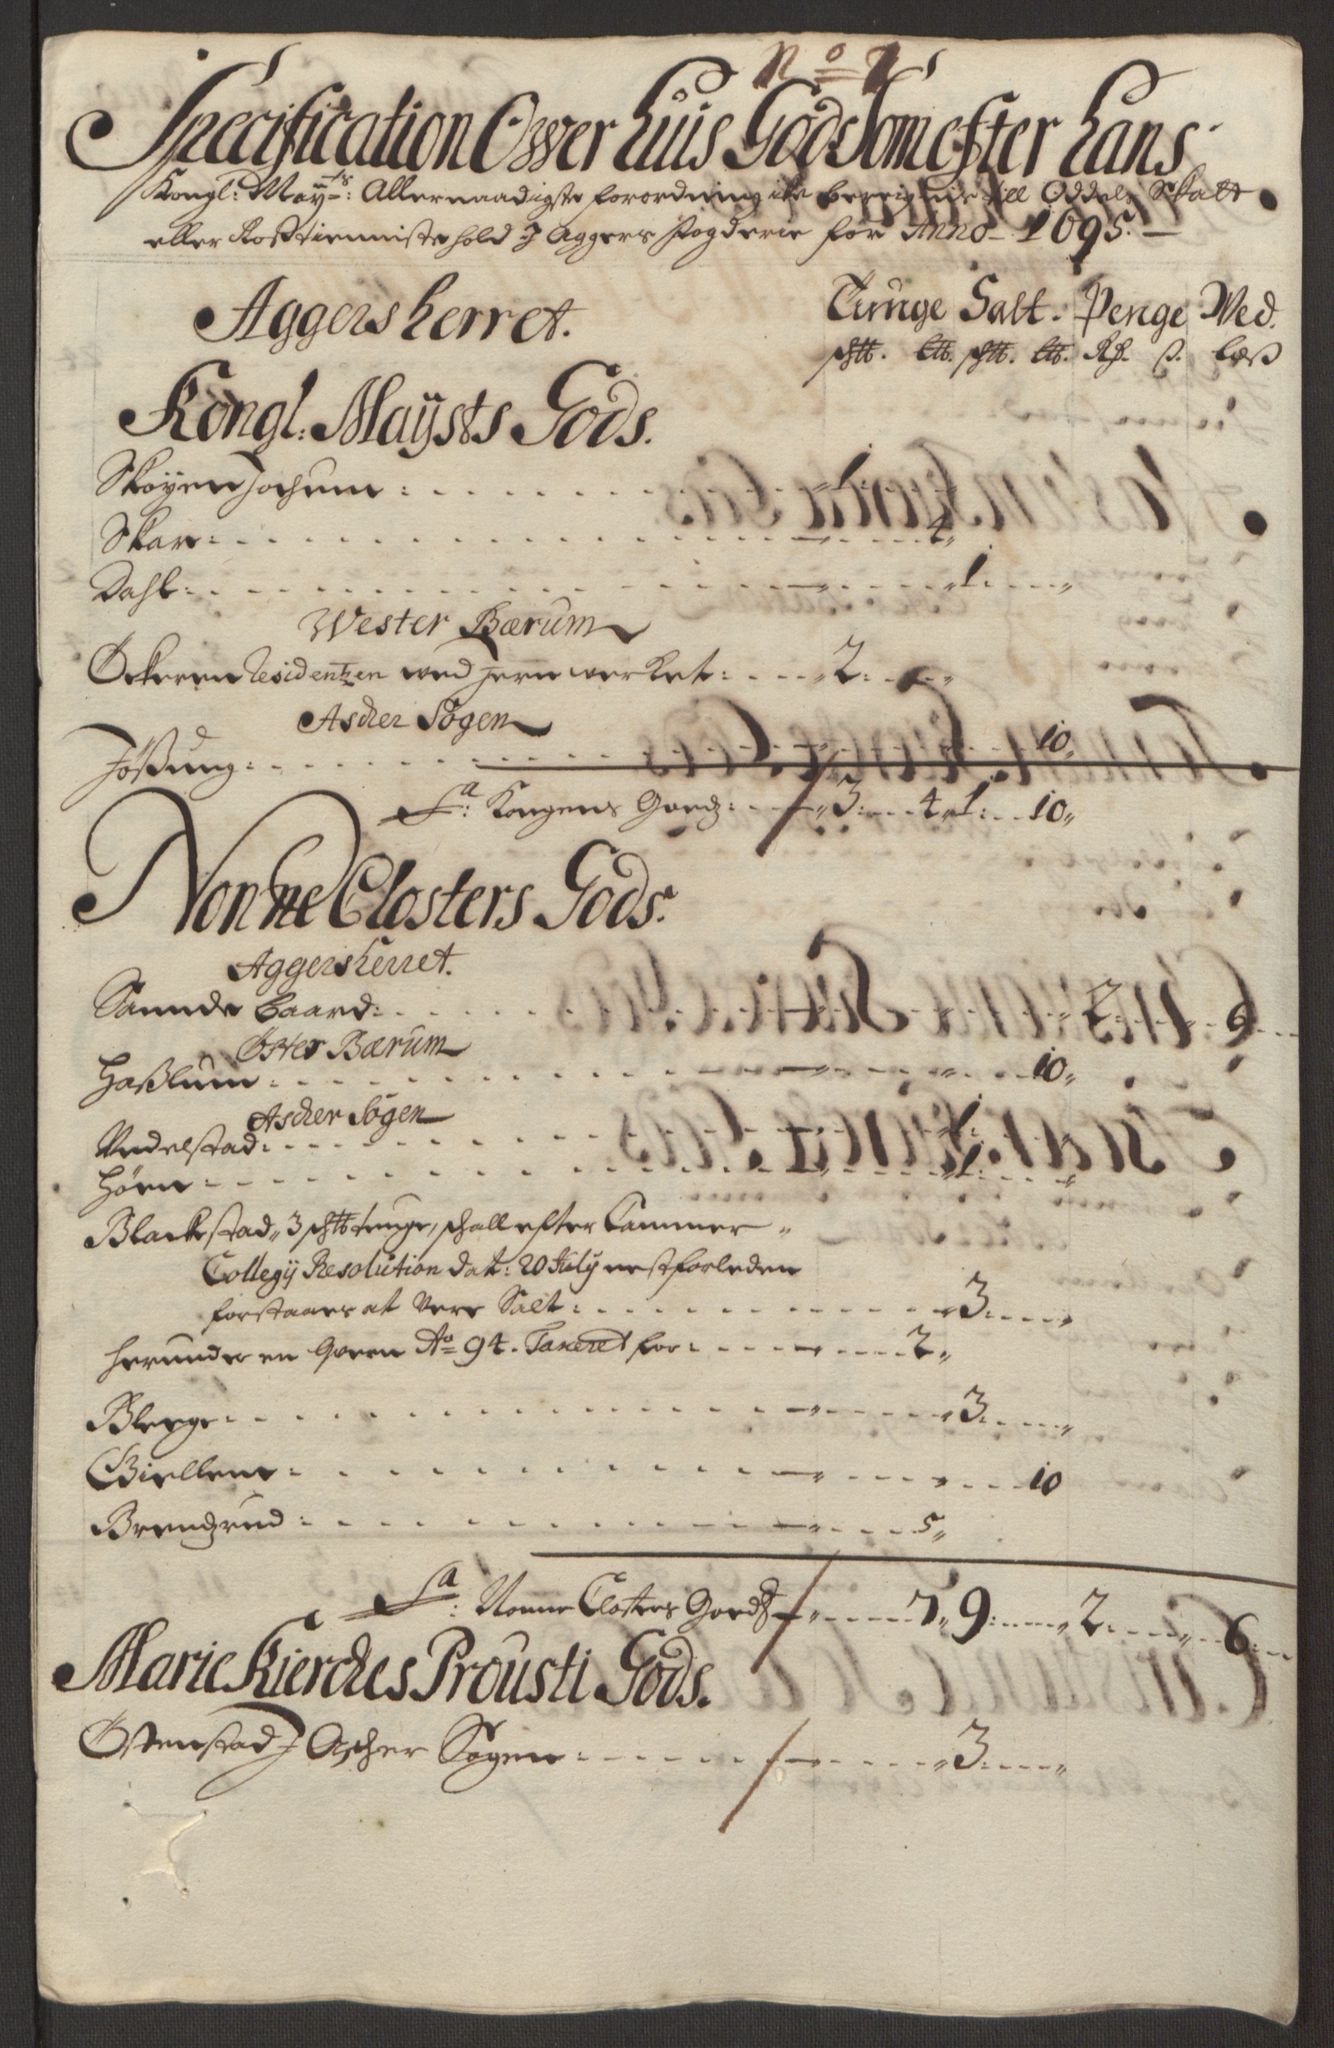 No 7
Specification Ower huis Gods som efter hans
Kongl: Mayts: Allernaadigste forordning iche berreignis till Oddels Skatt
eller Rosstienniste hold J Aggers fogderie for Anno 1695.
Aggersherret. Tunge Salt. Penge Wed.
schtt. ltt. schtt. ltt. Rd. s. less
Kongl: Maysts Gods.
Skøyen Jochum: 1
Skar: 4
Dahl: 1
Wester Bærum
Residentzen wed Jernwerket: 2
Ascher Sogen
Jøssung: 10
Sa: Kongens Gods: 3 4 1 10
Nonne Closters Gods.
Aggersherret.
Sannde baard: 2 6
Øster Bærum
Hasslum: 10
Ascher Sogen
Undelstad: 1
Hørn: 1
Blackestad, 3 schtt tunge, schall efter Cammer
Collegij Resolution dat: 20 July nestforleden
forstaaes at were Salt: 3
herunder en Qvern Ao 94. Taxeret for: 2
Blegge: 3
Giellum: 10
Brendzrud: 5
Sa: Nonne Closters Gods 7 9 2 6
Marie Kierckes Prousti Gods.
Østenstad J Ascher Sogen: 3